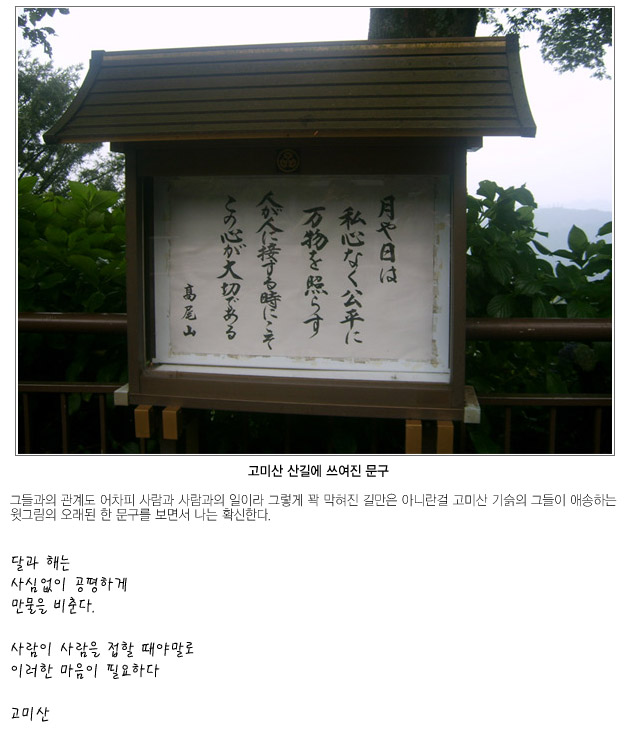 月や日は
私心なく公平に
万物を照らす
人が人に接する時にこそ
この心が大切である
高尾山
고미산 산길에 쓰여진 문구
그들과의 관계도 어차피 사람과 사람과의 일이라 그렇게 꽉 막혀진 길만은 아니란걸 고미산 기슭의 그들이 애송하는
윗그림의 오래된 한 문구를 보면서 나는 확신한다.
달과 해는
사심없이 공평하게
만물을 비춘다.
사람이 사람을 접할 때야말로
이러한 마음이 필요하다
고미산